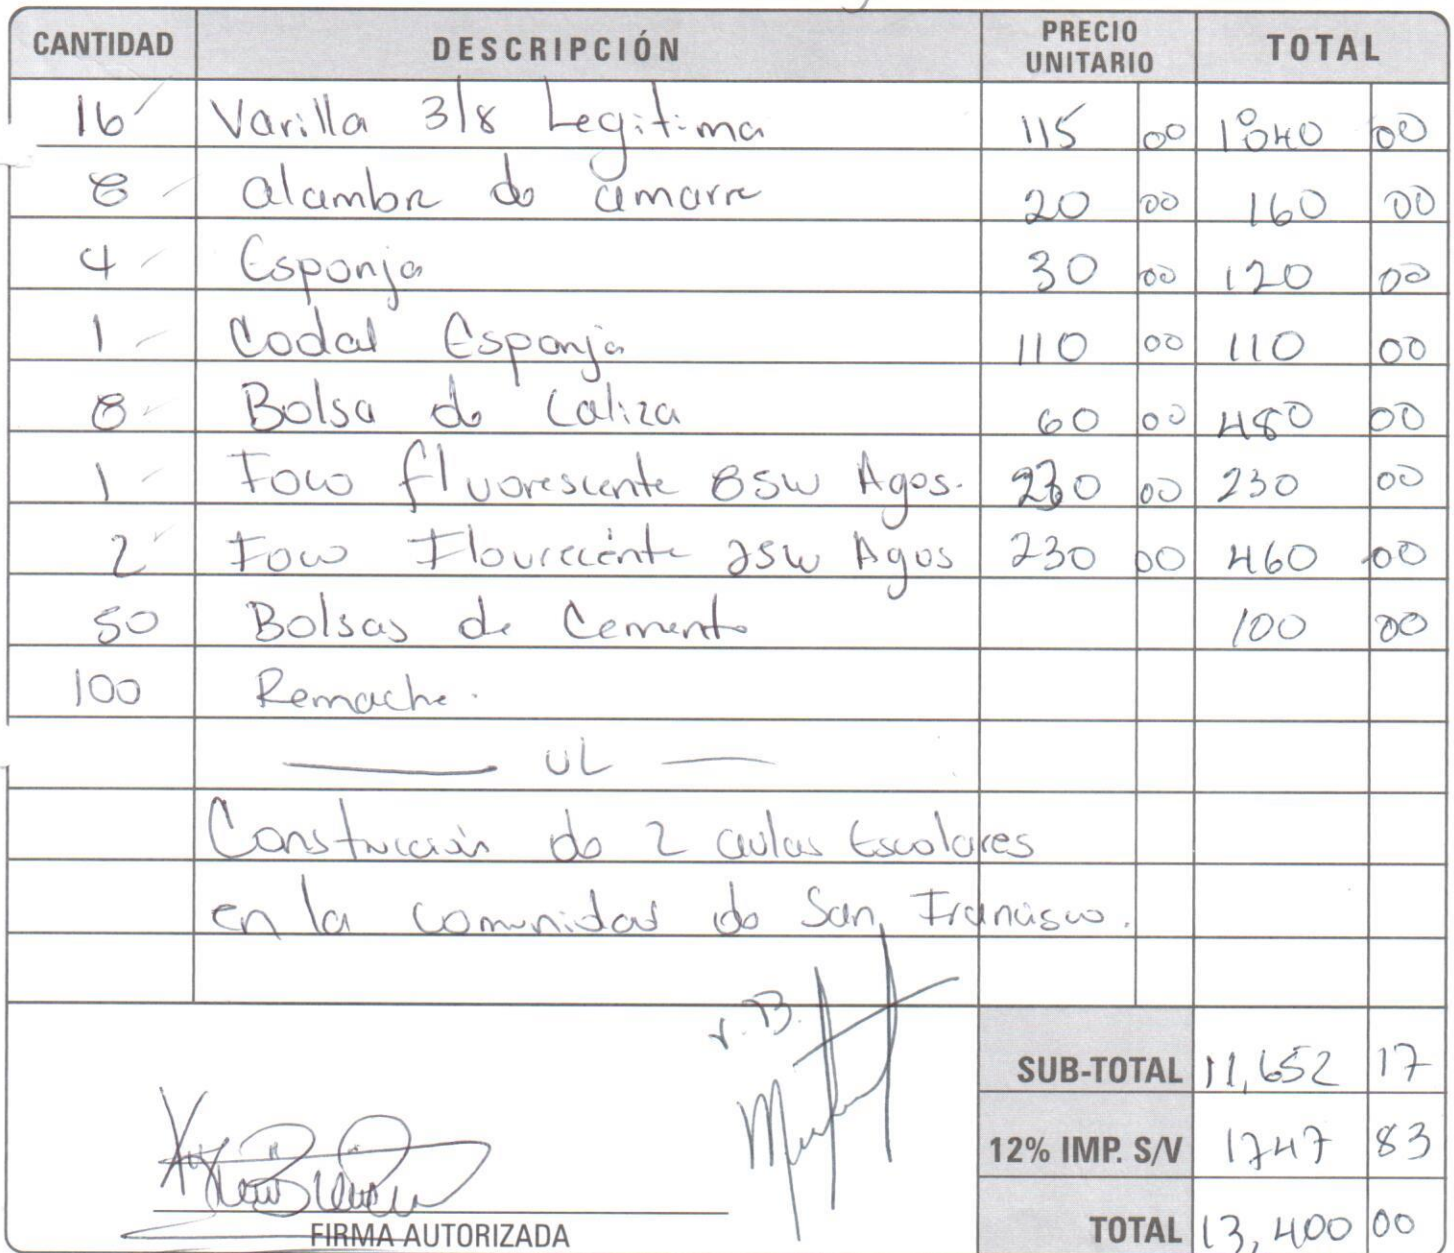 CANTIDAD DESCRIPCIÓN PRECIO UNITARIO TOTAL
16 Varilla 3/8 Legitima 115 00 1840 00
8 alambre de amarre 20 00 160 00
4 Esponja 30 00 120 00
1 Codal Esponja 110 00 110 00
8 Bolsa de Caliza 60 00 480 00
1 Foco fluorescente 85w Agos. 230 00 230 00
2 Foco Flourecente 25w Agos 230 00 460 00
50 Bolsas de Cemento 100 00
100 Remache.
UL
Construcción de 2 aulas Escolares
en la comunidad de San Francisco.
V. B.
SUB-TOTAL 11,652 17
12% IMP. S/V 1747 83
FIRMA AUTORIZADA
TOTAL 13,400 00